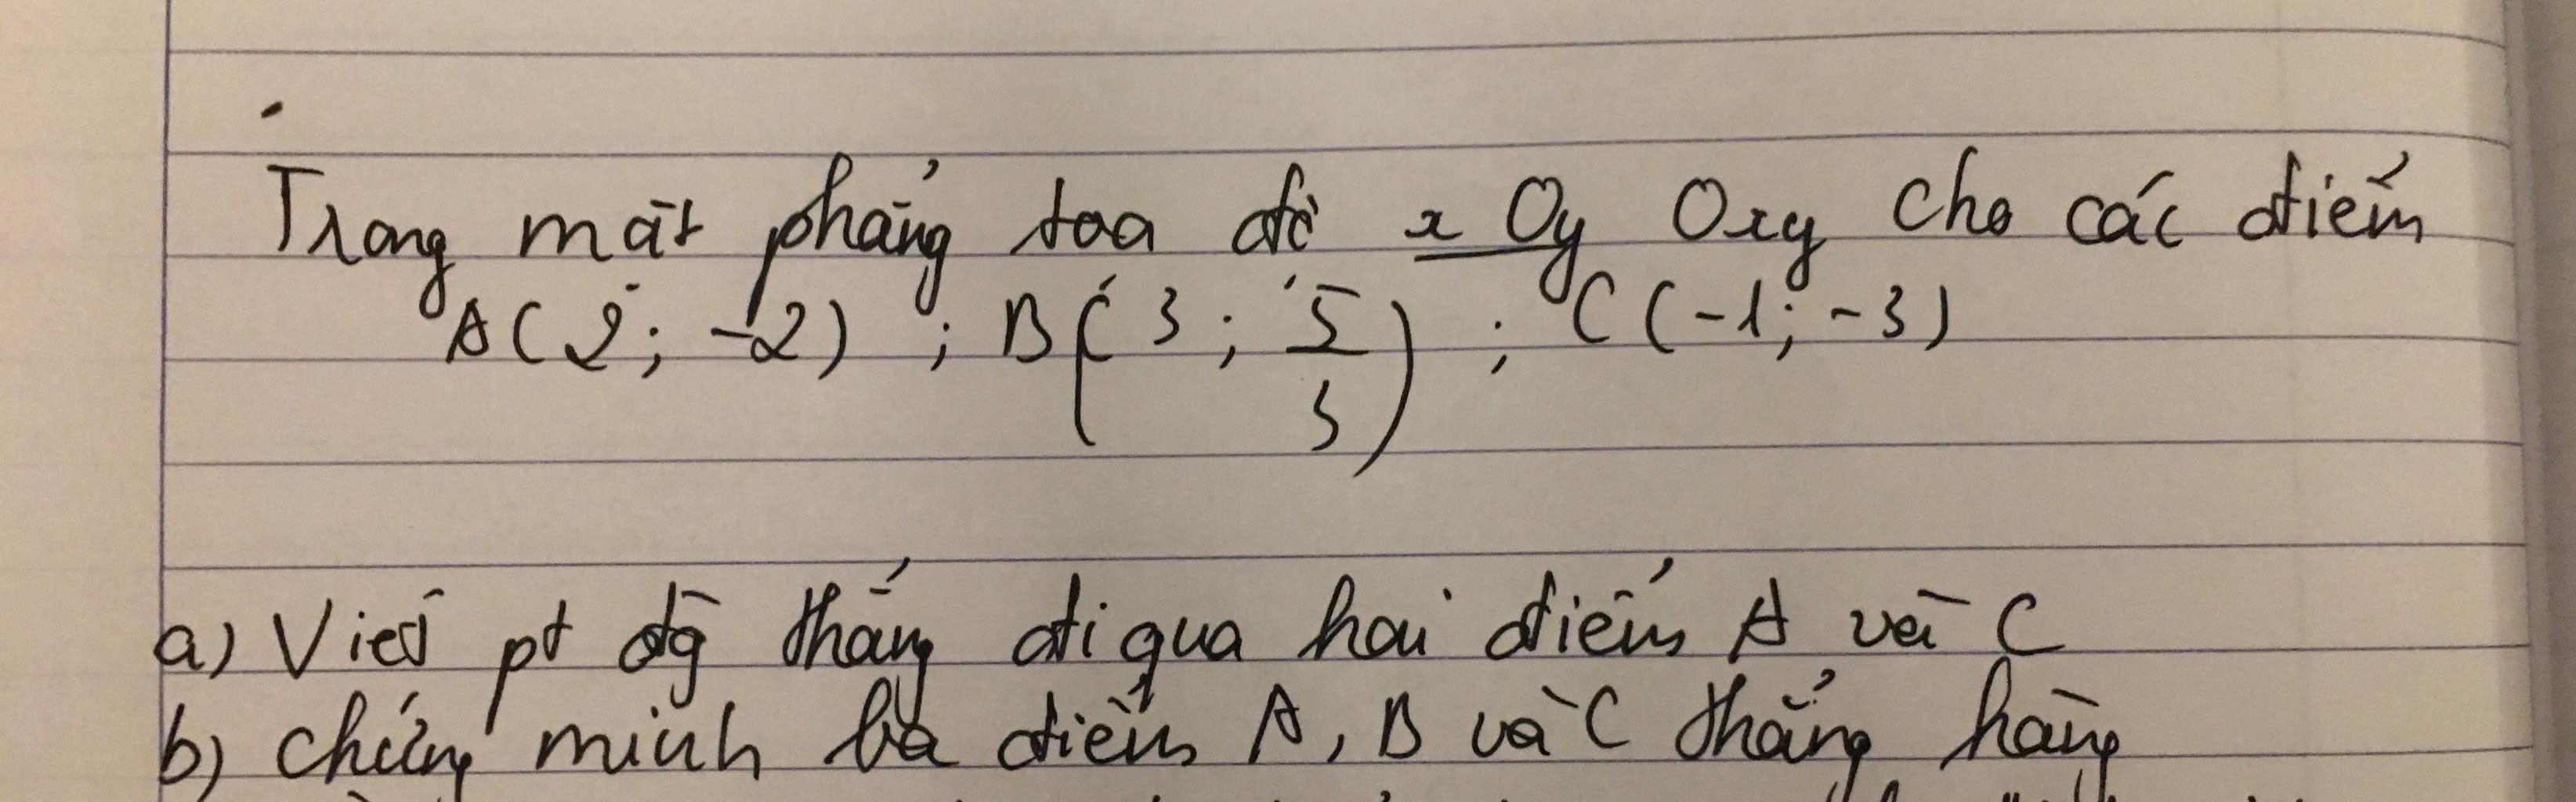 Trong mặt phẳng tọa độ x Oy Oxy cho các điểm
A(2; -2) ; B(3; 5/3) ; C(-1; -3)
a) Viết pt đg thẳng đi qua hai điểm A và C
b) chứng minh ba điểm A, B và C thẳng hàng